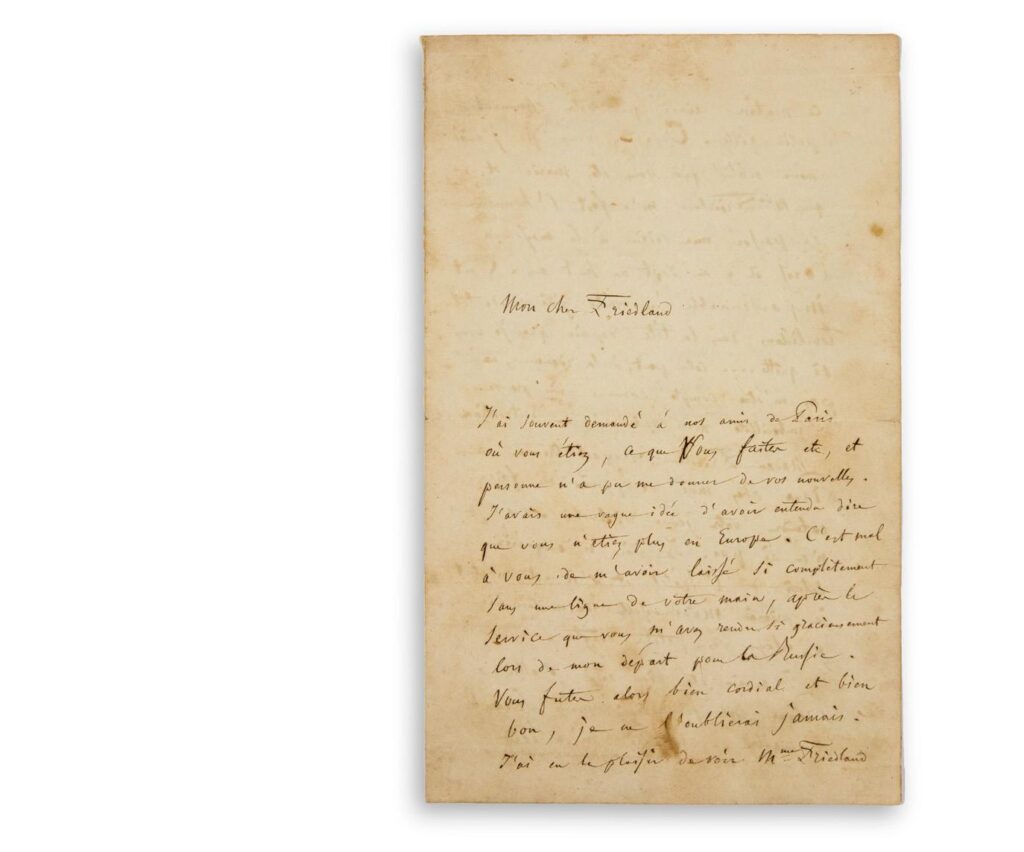 Mon cher Friedland
J'ai souvent demandé à nos amis de Paris
où vous étiez, ce que Vous faites etc, et
personne n'a pu me donner de vos nouvelles.
J'avais une vague idée d'avoir entendu dire
que vous n'étiez plus en Europe. C'est mal
à vous de m'avoir laissé si complètement
sans une ligne de votre main, après le
service que vous m'avez rendu si gracieusement
lors de mon départ pour la Russie.
Vous futes alors bien cordial et bien
bon, je ne l'oublierai jamais.
J'ai eu le plaisir de voir Mme Friedland